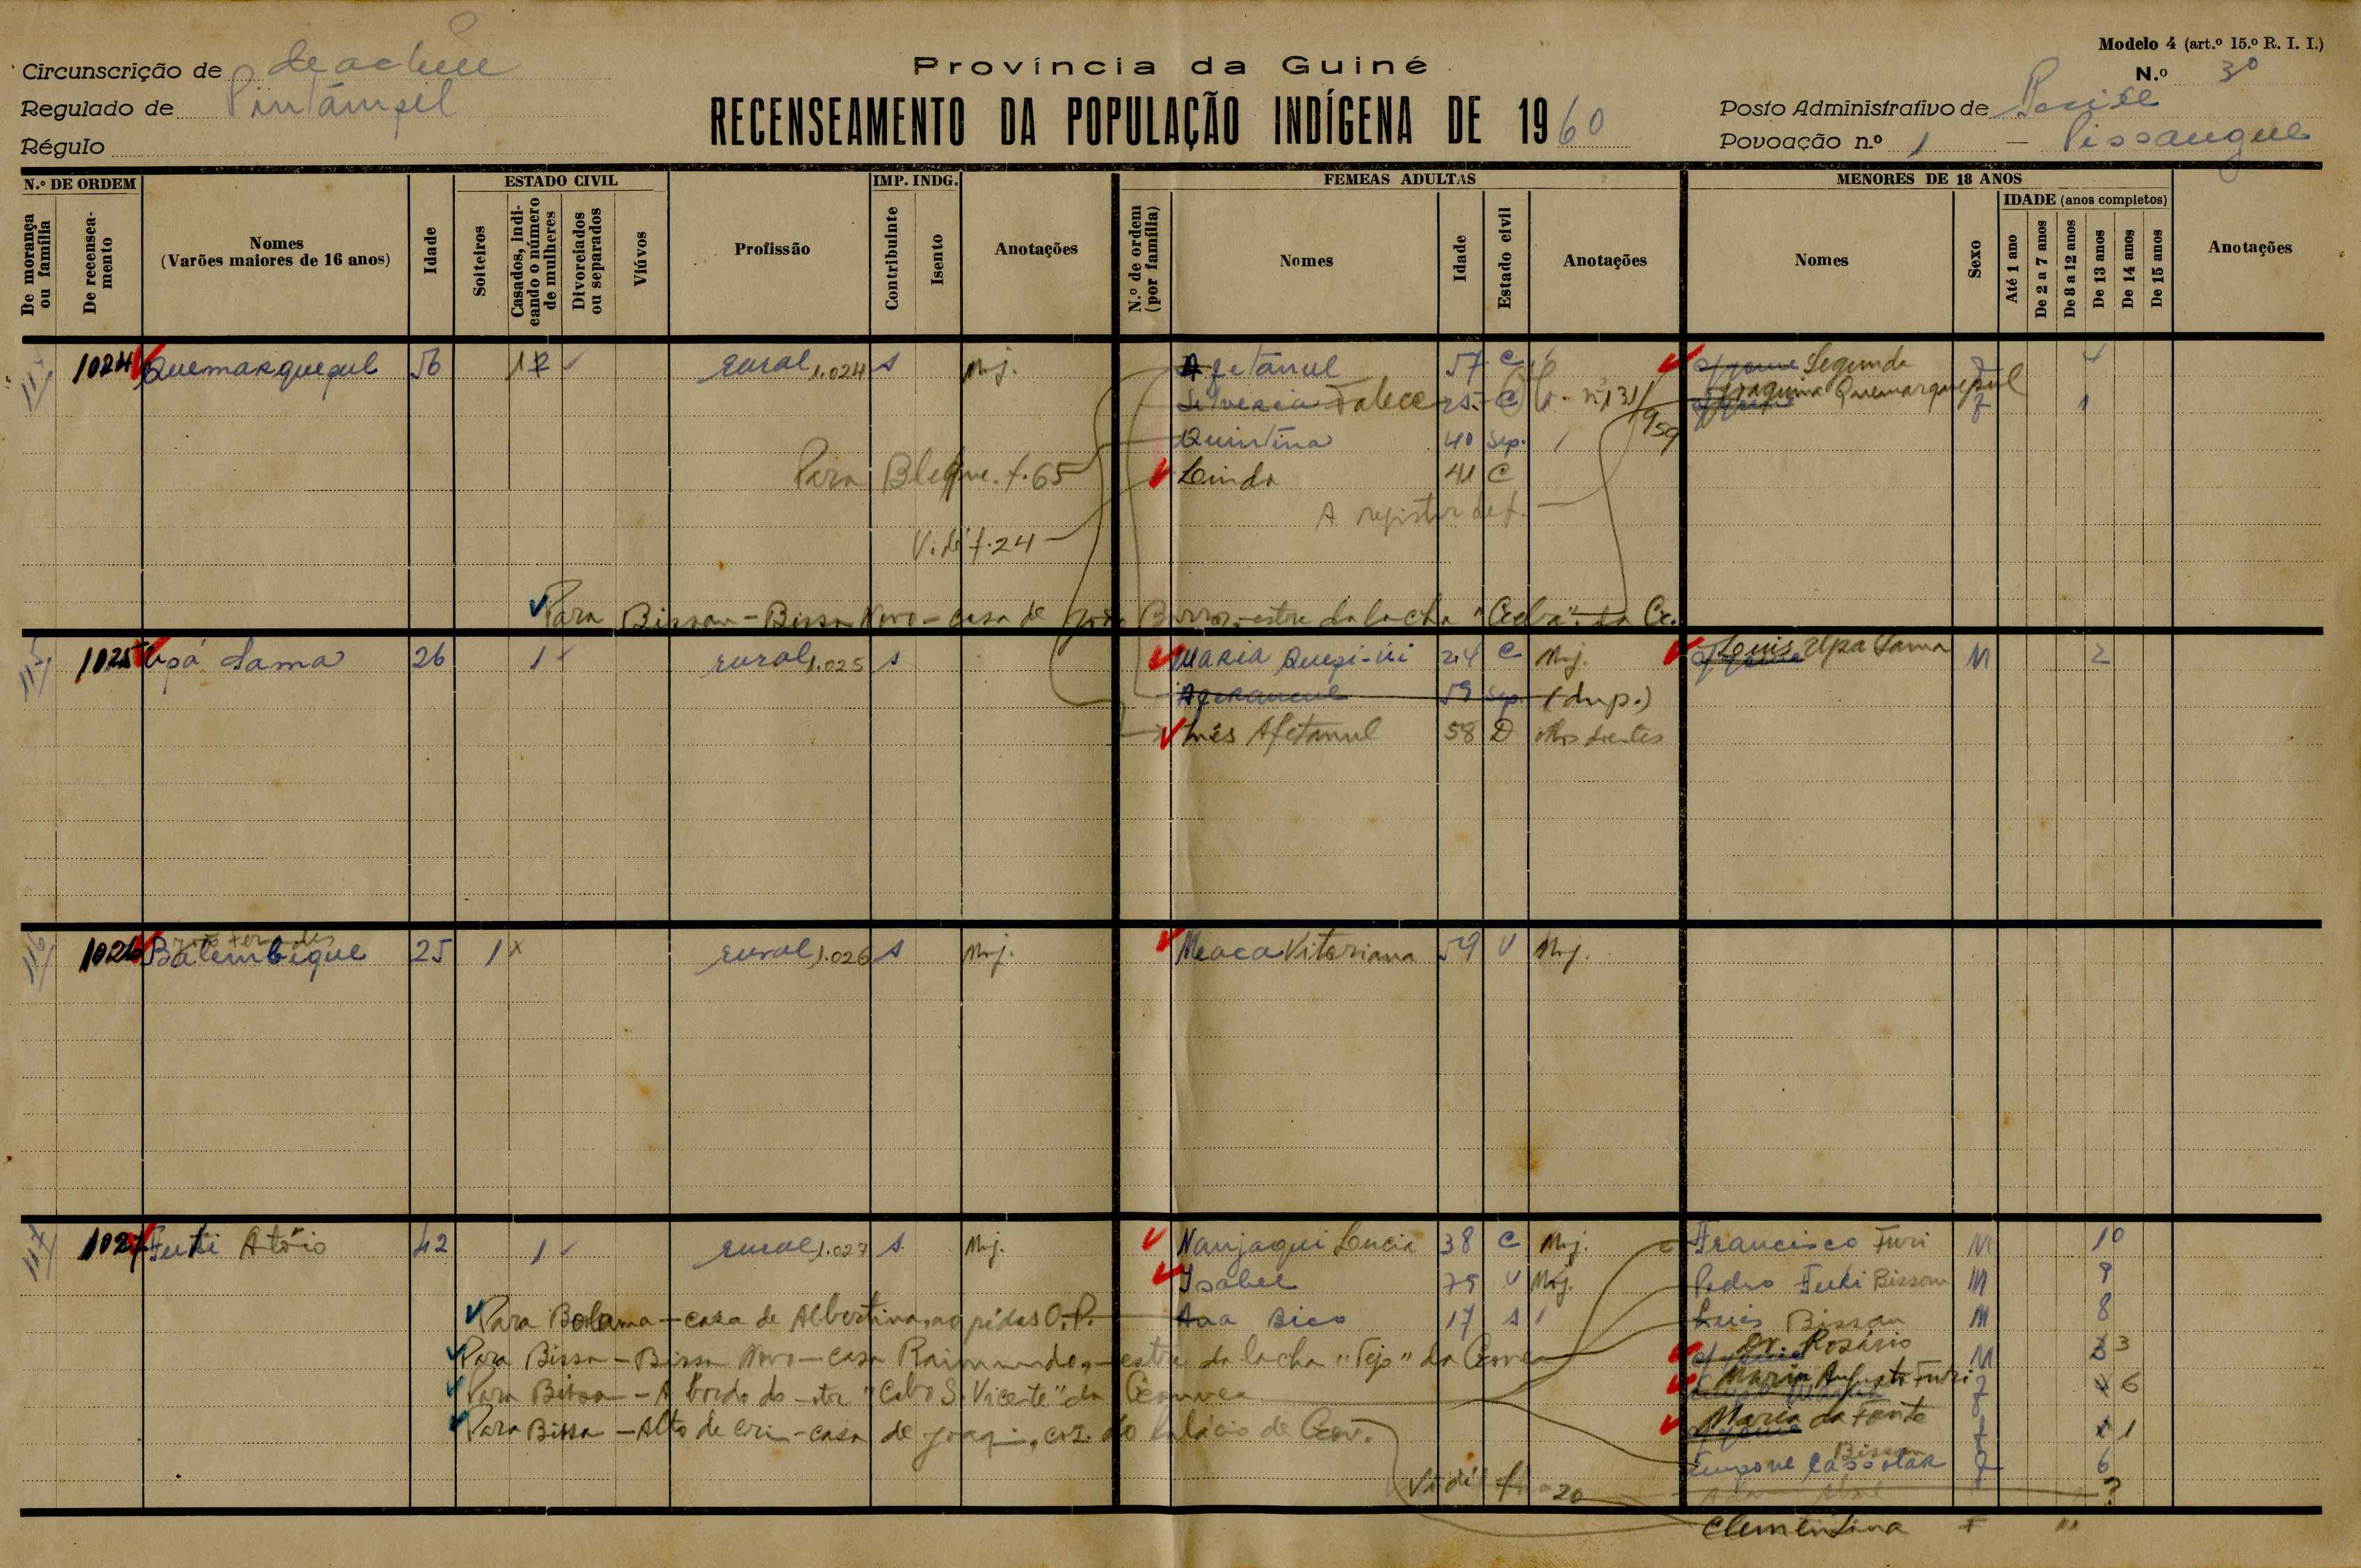 Modelo 4 (art.º 15.º R. I. I.)
Província da Guiné
Circunscrição de
N.º 30
Regulado de Pintâmpil
RECENSEAMENTO DA POPULAÇÃO INDÍGENA DE 1960
Posto Administrativo de
Régulo
Povoação n.º 1 - Pissangue
N.º DE ORDEM
ESTADO CIVIL
IMP. INDG.
FEMEAS ADULTAS
MENORES DE 18 ANOS
De morança ou família
De recenseamento
Nomes (Varões maiores de 16 anos)
Idade
Solteiros
Casados, indicando o número de mulheres
Divorciados ou separados
Viúvos
Profissão
Contribuinte
Isento
Anotações
N.º de ordem (por família)
Nomes
Idade
Estado civil
Anotações
Nomes
Sexo
IDADE (anos completos)
Até 1 ano
De 2 a 7 anos
De 8 a 12 anos
De 13 anos
De 14 anos
De 15 anos
Anotações
1024 Quemarquepul 56 12 rural 1.024 s Mj. Afetânul 57 C Segunda f 4
Silveria Falece 25 C n.º 131/959 Joaquina Quemarquepul f 1
Quintina 40 sep.
Para Bleque f. 65 Linda 41 C
A registar def.
Vidé f. 24
Para Bissau - Bissau Novo - casa de João Barros, da lacha
1025 Upá Sama 26 1 rural 1.025 s Maria Quepi-ui 24 C Mj. Luis Upa Sama M 2
59 sep. (dup.)
Inês Afetanul 58 D
João Fernandes
1026 Batembique 25 1 rural 1.026 s Mj. Meaca Vitoriana 59 V Mj.
1027 Furi Atóio 42 1 rural 1.027 s Mj. Nanjaqui Lucia 38 C Mj. Francisco Furi M 10
Isabel 79 V Mj. Pedro Furi Bissau M 9
Para Bolama - casa de Albertina, ao pé das O. P. Ana Bico 17 s Luis Bissau M 8
Para Bissau - Bissau Novo - casa Raimundo, da lacha "Tejo" da Rosário M 3
Para Bissau - A bordo do "Cabo S. Vicente" da Maria Augusta Furi f 6
Para Bissau - Alto de Crim - casa de Joaquim, coz. do Palácio do Gov. Maria da Fonte f 1
Bissau
Cassotar f 6
Vidé 20 ?
Clementina F "